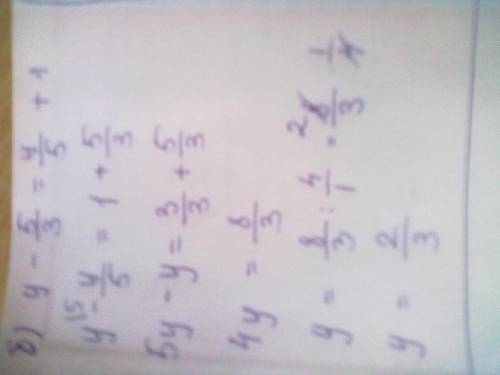 б) y - 5/3 = y/5 + 1
y^15 - y/5 = 1 + 5/3
5y - y = 3/3 + 5/3
4y = 8/3
y = 8/3 : 4/1 = 2 8/3 · 1/4
y = 2/3